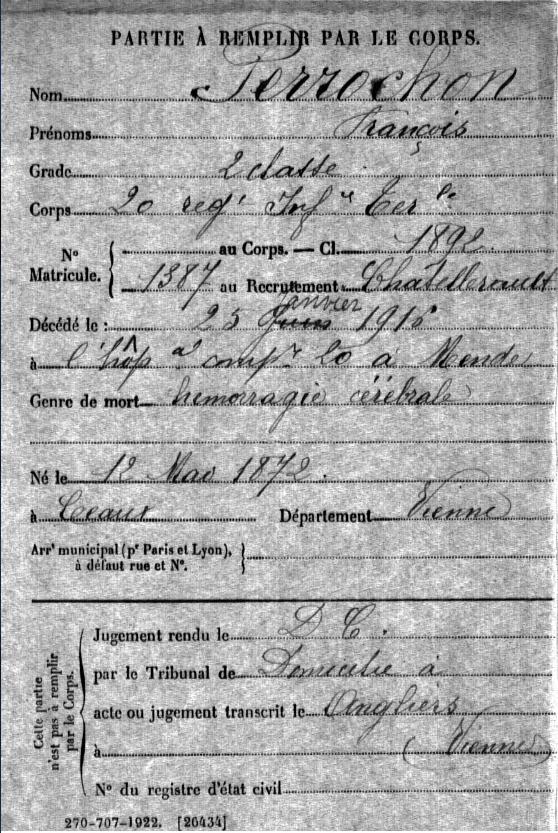 PARTIE À REMPLIR PAR LE CORPS.
Nom Perrochon
Prénoms François
Grade 2 classe
Corps 20 reg^t Inf^ie Ter^le
N° Matricule. { au Corps. — Cl. 1892
1387 au Recrutement Chatellerault
Décédé le : 25 Juin janvier 1915
à l'hôp^al comp^re 20 à Mende
Genre de mort hémorragie cérébrale
Né le 12 Mai 1872
à Ceaux Département Vienne
Arr^t municipal (p^r Paris et Lyon), à défaut rue et N°. }
Cette partie n'est pas à remplir par le Corps.
Jugement rendu le D C.
par le Tribunal de Domicilié à
acte ou jugement transcrit le Angliers
à (Vienne)
N° du registre d'état civil
270-707-1922. [26434]